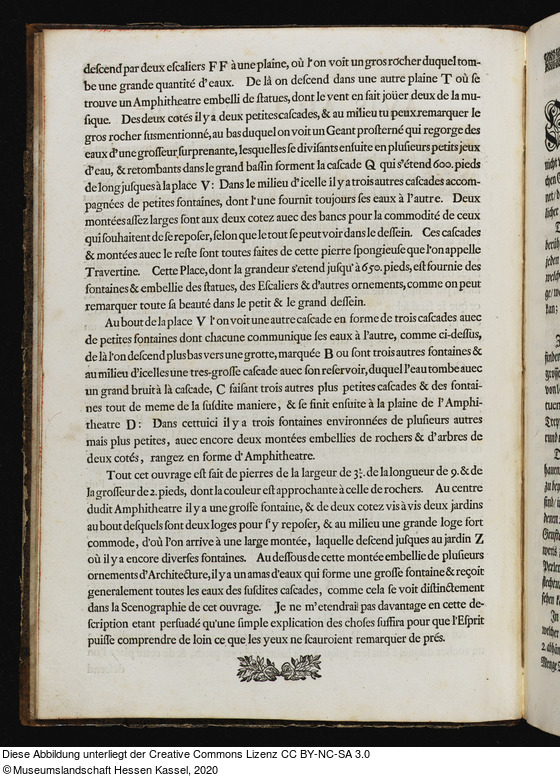 deſcend par deux eſcaliers F F à une plaine, où l'on voit un gros rocher duquel tom-
be une grande quantité d'eaux. De là on deſcend dans une autre plaine T où ſe
trouve un Amphitheatre embelli de ſtatues, dont le vent en fait joüer deux de la mu-
ſique. Des deux cotés il y a deux petites caſcades, & au milieu tu peux remarquer le
gros rocher ſusmentionné, au bas duquel on voit un Geant proſterné qui regorge des
eaux d'une groſſeur ſurprenante, lesquelles ſe diviſants enſuite en pluſieurs petits jeux
d'eau, & retombants dans le grand baſſin forment la caſcade Q qui s'étend 600. pieds
de long jusques à la place V: Dans le milieu d'icelle il y a trois autres caſcades accom-
pagnées de petites fontaines, dont l'une fournit toujours ſes eaux à l'autre. Deux
montées aſſez larges ſont aux deux cotez avec des bancs pour la commodité de ceux
qui ſouhaitent de ſe repoſer, ſelon que le tout ſe peut voir dans le deſſein. Ces caſcades
& montées avec le reſte ſont toutes faites de cette pierre ſpongieuſe que l'on appelle
Travertine. Cette Place, dont la grandeur s'etend jusqu'à 650. pieds, eſt fournie des
fontaines & embellie des ſtatues, des Eſcaliers & d'autres ornements, comme on peut
remarquer toute ſa beauté dans le petit & le grand deſſein.
Au bout de la place V l'on voit une autre caſcade en forme de trois caſcades avec
de petites fontaines dont chacune communique ſes eaux à l'autre, comme ci-deſſus,
de là l'on deſcend plus bas vers une grotte, marquée B ou ſont trois autres fontaines &
au milieu d'icelles une tres-groſſe caſcade avec ſon reſervoir, duquel l'eau tombe avec
un grand bruit à là caſcade, C faiſant trois autres plus petites caſcades & des fontai-
nes tout de meme de la ſuſdite maniere, & ſe finit enſuite à la plaine de l'Amphi-
theatre D: Dans cettuici il y a trois fontaines environnées de pluſieurs autres
mais plus petites, avec encore deux montées embellies de rochers & d'arbres de
deux cotés, rangez en forme d'Amphitheatre.
Tout cet ouvrage eſt fait de pierres de la largeur de 3½. de la longueur de 9. & de
la groſſeur de 2. pieds, dont la couleur eſt approchante à celle de rochers. Au centre
dudit Amphitheatre il y a une groſſe fontaine, & de deux cotez vis à vis deux jardins
au bout desquels ſont deux loges pour ſ'y repoſer, & au milieu une grande loge fort
commode, d'où l'on arrive à une large montée, laquelle deſcend juſques au jardin Z
où il y a encore diverſes fontaines. Au deſſous de cette montée embellie de pluſieurs
ornements d'Architecture, il y a un amas d'eaux qui forme une groſſe fontaine & reçoit
generalement toutes les eaux des ſuſdites caſcades, comme cela ſe voit diſtinctement
dans la Scenographie de cet ouvrage. Je ne m'etendrai pas davantage en cette de-
ſcription etant perſuadé qu'une ſimple explication des choſes ſuffira pour que l'Eſprit
puiſſe comprendre de loin ce que les yeux ne ſcauroient remarquer de prés.
Diese Abbildung unterliegt der Creative Commons Lizenz CC BY-NC-SA 3.0
©Museumslandschaft Hessen Kassel, 2020